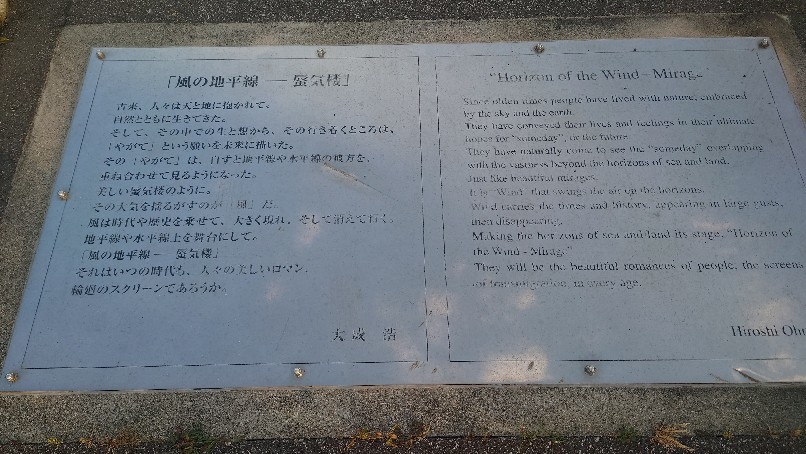 「風の地平線 ― 蜃気楼」
古来、人々は天と地に抱かれて。
自然とともに生きてきた。
そして、その中での生と想から、その行き着くところは、
「やがて」という願いを未来に描いた。
その「やがて」は、自ずと地平線や水平線の彼方を、
重ね合わせて見るようになった。
美しい蜃気楼のように。
その大気を揺るがすのが「風」だ。
風は時代や歴史を乗せて、大きく現れ、そして消えて行く。
地平線や水平線上を舞台にして。
「風の地平線 ― 蜃気楼」
それはいつの時代も、人々の美しいロマン、
輪廻のスクリーンであろうか。
大成 浩
"Horizon of the Wind - Mirag
Since olden times people have lived with nature, embraced
by the sky and the earth.
They have conveyed their lives and feelings in their ultimate
hopes for "someday", or the future.
They have naturally come to see the "someday" overlapping
with the vastness beyond the horizons of sea and land.
Just like beautiful mirages.
It is "Wind" that swings the air on the horizons.
Wind carries the times and history, appearing in large gusts,
then disappearing.
Making the horizons of sea and land its stage, "Horizon of
the Wind - Mirage"
They will be the beautiful romances of people, the screens
of transmigration, in every age.
Hiroshi